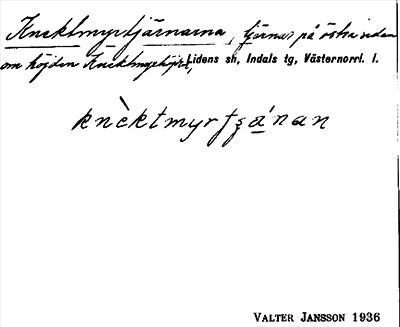 Knektmyrtjärnarna, tjärnar på östra sidan
om höjden Knektmyrhöjd, Lidens sn, Indals tg, Västernorrl. l.
knècktmyrtʂa̱´nan
VALTER JANSSON 1936